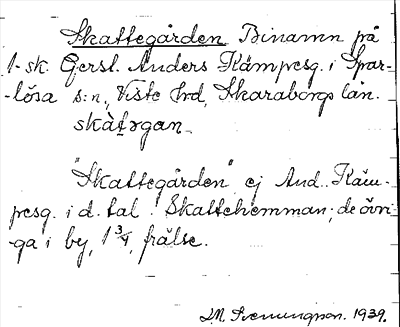 Skattegården Binamn på
1-sk. Gerst. Anders Kämpesg. i Spar-
-lösa s:n, Viste hrd, Skaraborgs län.
skàt̠əgan
"Skattegården" ej And. Käm-
pesg. i d. tal. Skattehemman; de övri-
-ga i by, 1 3/4, frälse.
J.M. Svenungson. 1939.